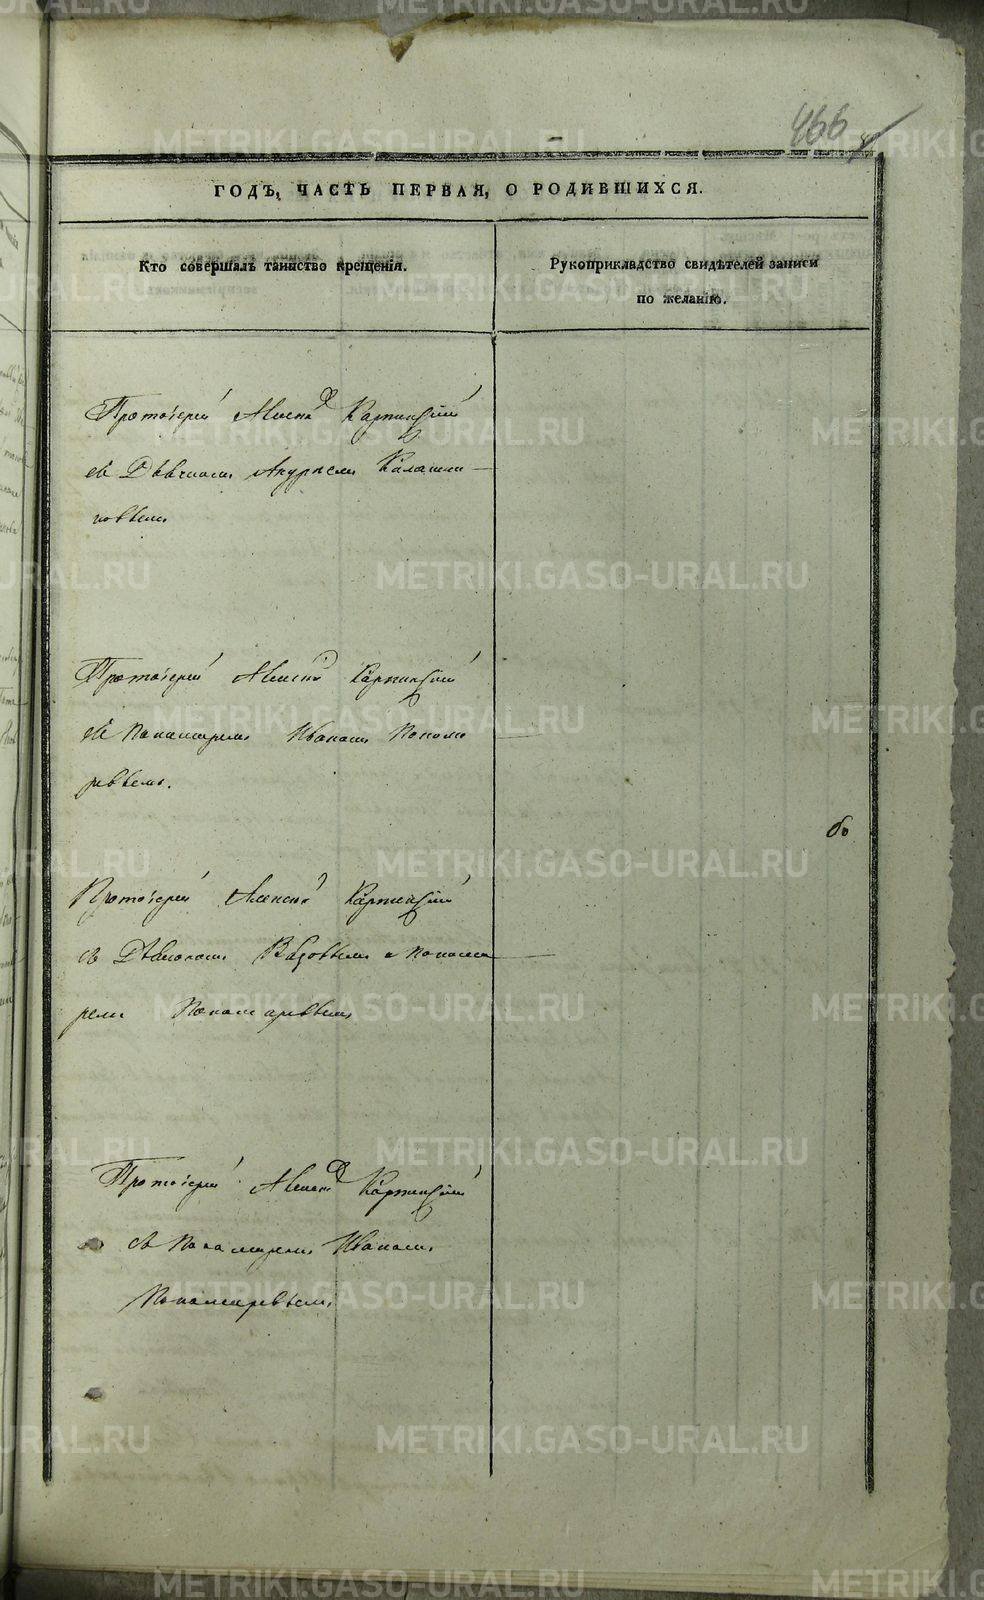 466
ГОДЪ, ЧАСТЬ ПЕРВАЯ, О РОДИВШИХСЯ.
Кто совершалъ таинство крещенія.
Рукоприкладство свидѣтелей записи
по желанію.
Протоіерей Алексѣй Карпинскій
съ Дьячкомъ Калашни
ковымъ
Протоіерей Алексѣй Карпинскій
съ Пономаремъ Иваномъ Понома
ревымъ.
Протоіерей Алексѣй Карпинскій
съ Дьякономъ и Понома
ремъ Пономаревымъ
Протоіерей Алексѣй Карпинскій
съ Пономаремъ Иваномъ
Пономаревымъ
METRIKI.GASO-URAL.RU